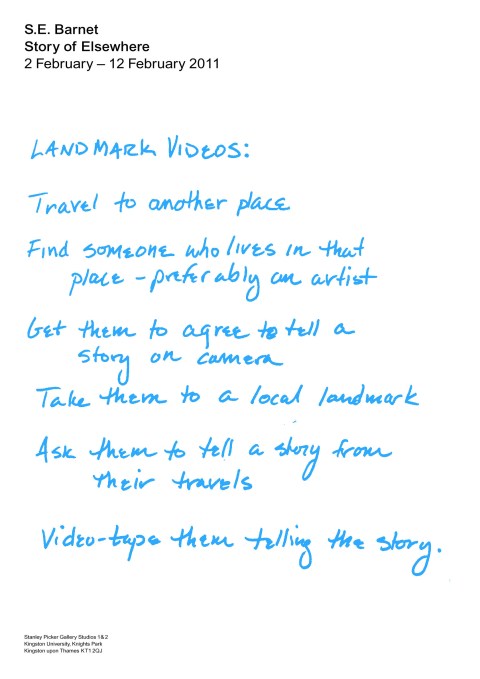 S.E. Barnet
Story of Elsewhere
2 February – 12 February 2011
LANDMARK VIDEOS:
Travel to another place
Find someone who lives in that
place – preferably an artist
Get them to agree to tell a
story on camera
Take them to a local landmark
Ask them to tell a story from
their travels
Video-tape them telling the story.
Stanley Picker Gallery Studios 1&2
Kingston University, Knights Park
Kingston upon Thames KT1 2QJ